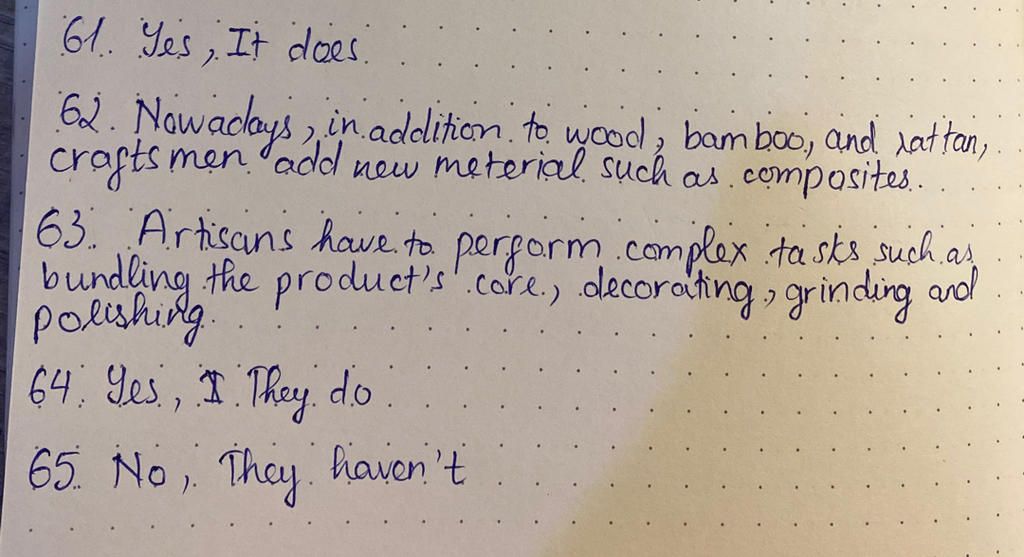 61. Yes, It does.
62. Nowadays, in addition to wood, bamboo, and rattan,
craftsmen add new meterial such as composites.
63. Artisans have to perform complex tasks such as
bundling the product's core, decorating, grinding and
polishing.
64. Yes, They do
65. No, They haven't